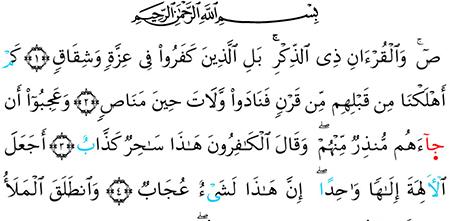 بِسْمِ ٱللَّهِ ٱلرَّحْمَٰنِ ٱلرَّحِيمِ
صٓۚ وَٱلْقُرْءَانِ ذِى ٱلذِّكْرِۚ بَلِ ٱلَّذِينَ كَفَرُوا۟ فِى عِزَّةٍ وَشِقَاقٍ ﴿١﴾ كَمْ
أَهْلَكْنَا مِن قَبْلِهِم مِّن قَرْنٍ فَنَادَوا۟ وَّلَاتَ حِينَ مَنَاصٍ ﴿٢﴾ وَعَجِبُوٓا۟ أَن
جَآءَهُم مُّنذِرٌ مِّنْهُمْۖ وَقَالَ ٱلْكَافِرُونَ هَاذَا سَاحِرٌ كَذَّابٌ ﴿٣﴾ أَجَعَلَ
ٱلْأَلِهَةَ إِلَاهًا وَاحِدًاۖ إِنَّ هَاذَا لَشَىْءٌ عُجَابٌ ﴿٤﴾ وَٱنطَلَقَ ٱلْمَلَأُ